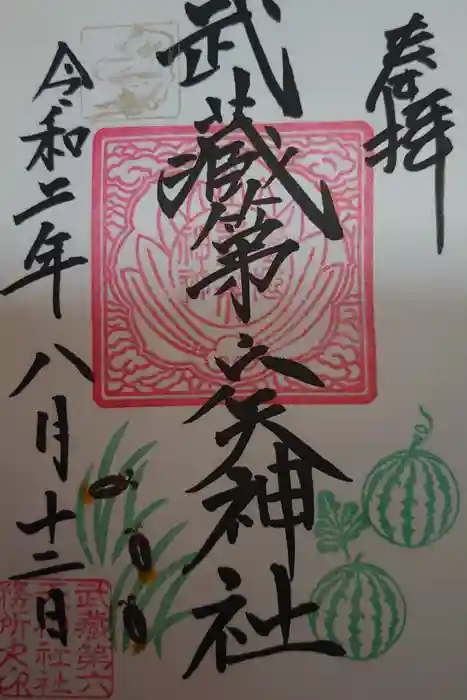 奉拝
武蔵第六天神社
令和二年八月十二日
武蔵第六
天神社社
務所之印